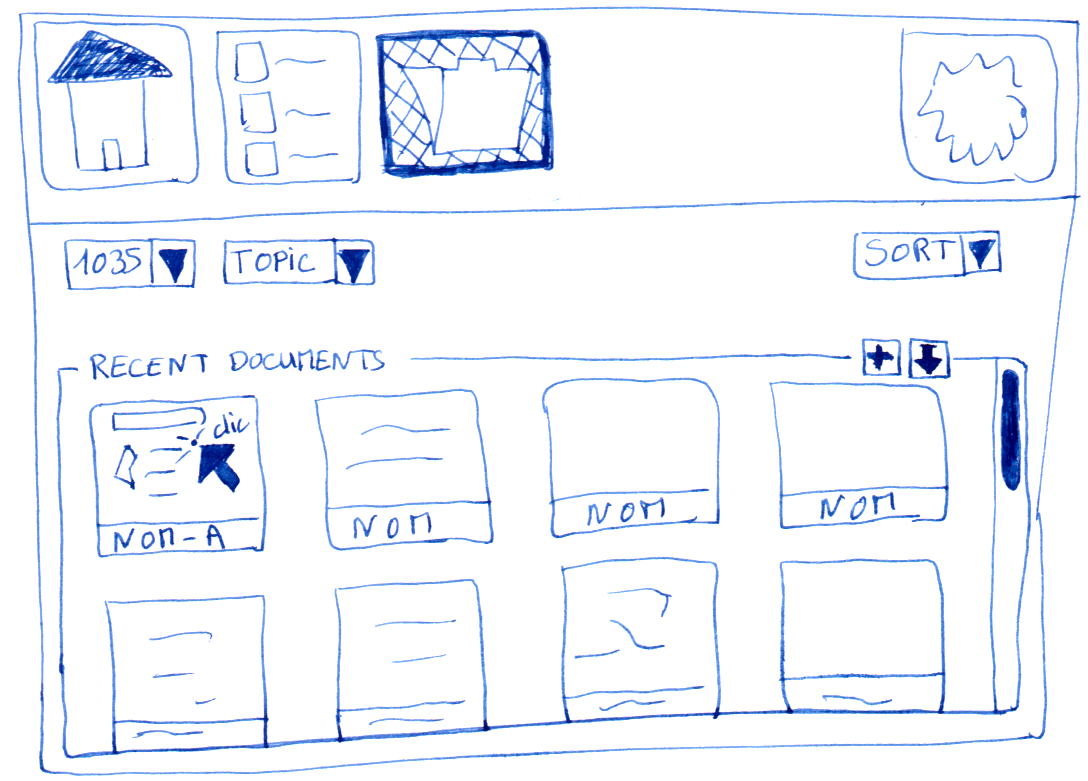 1035 TOPIC SORT
RECENT DOCUMENTS
clic
NOM-A NOM NOM NOM